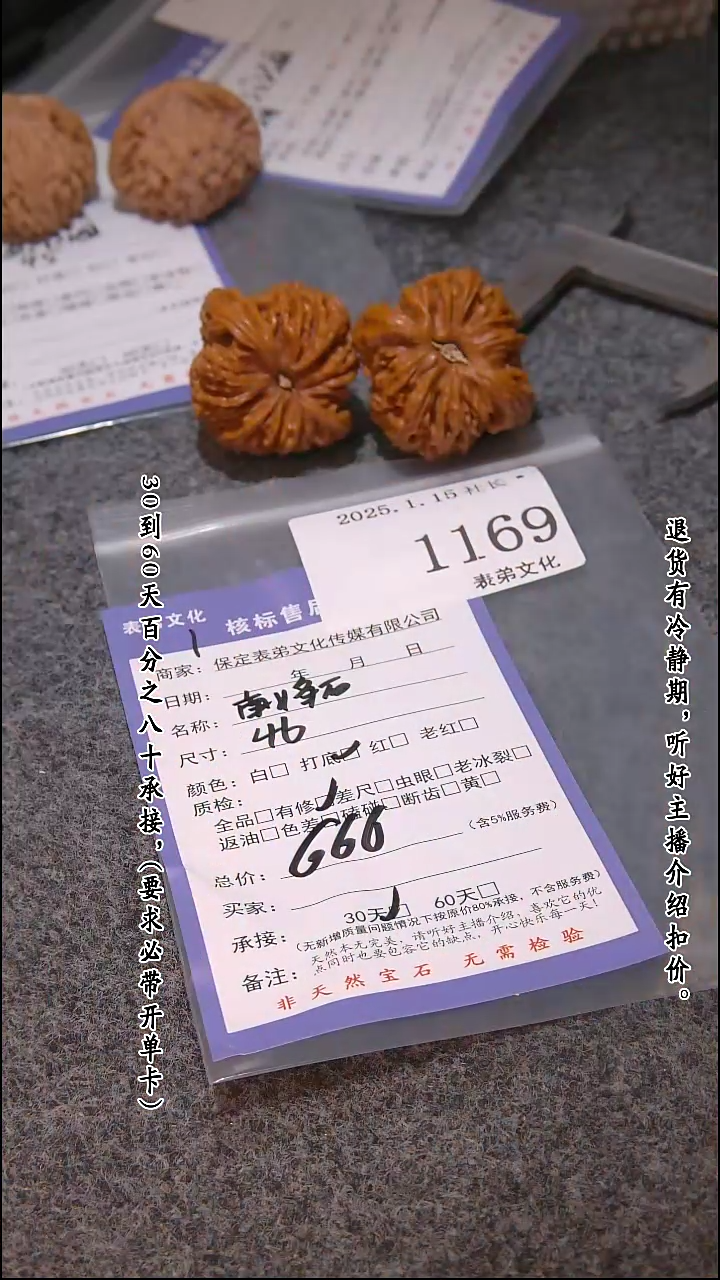 2025.1.15 社长-
1169
表弟文化
表弟文化 核标售后
商家：保定表弟文化传媒有限公司
日期： 年 月 日
名称：
尺寸：46
颜色：白□ 打底□ 红□ 老红□
质检：
全品□有修□差尺□虫眼□老冰裂□
返油□色差□磕碰□断齿□黄□
总价：666 （含5%服务费）
买家：
承接：30天□ 60天□
（无新增质量问题情况下按原价80%承接，不含服务费）
备注：天然本无完美，请听好主播介绍，喜欢它的优
点同时也要包容它的缺点，开心快乐每一天！
非天然宝石 无需检验
30到60天百分之八十承接，（要求必带开单卡）
退货有冷静期，听好主播介绍扣价。